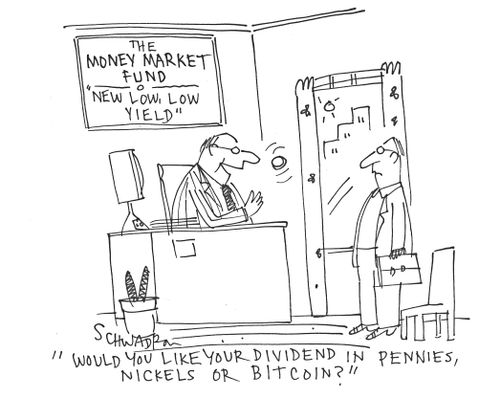 THE
MONEY MARKET
FUND
"NEW LOW, LOW
YIELD"
SCHWADRON
"WOULD YOU LIKE YOUR DIVIDEND IN PENNIES,
NICKELS OR BITCOIN?"